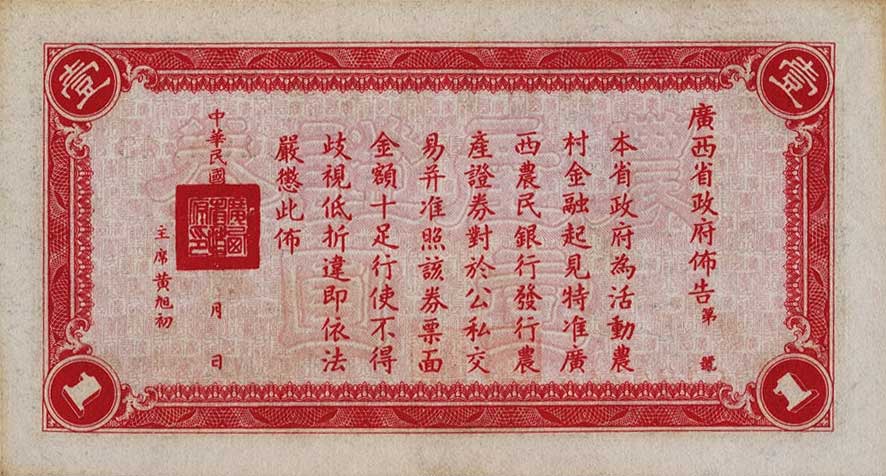 壹
壹
廣西省政府佈告第 號
本省政府為活動農
村金融起見特准廣
西農民銀行發行農
產證券對於公私交
易并准照該券票面
金額十足行使不得
歧視低折違即依法
嚴懲此佈
中華民國 月 日
主席黃旭初
農產證券
壹圓
1
1